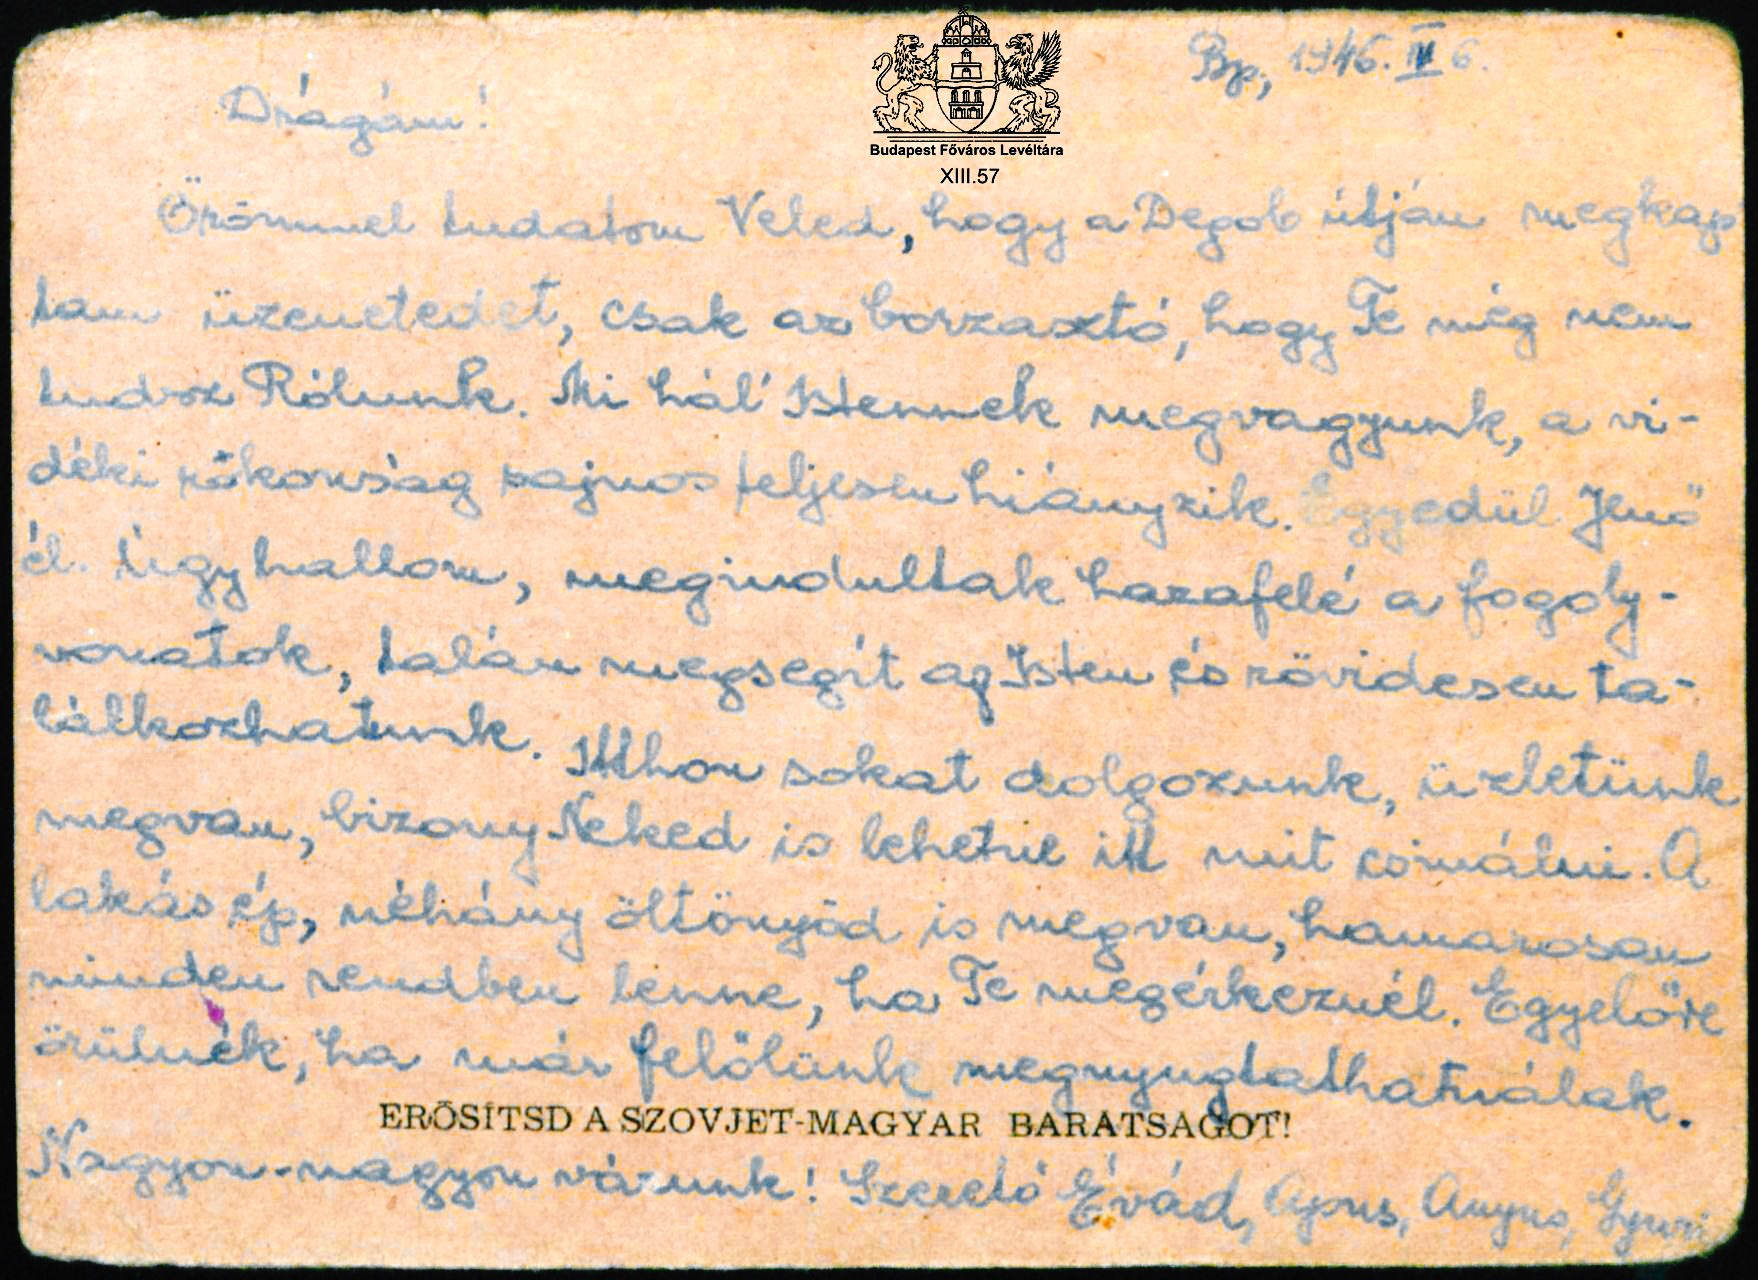 Budapest Főváros Levéltára
XIII.57
Bp, 1946. IV 6.
Drágám!
Örömmel tudatom Veled, hogy a Degob útján megkap
tam üzenetedet, csak az borzasztó, hogy Te még nem
tudsz Rólunk. Mi hál' Istennek megvagyunk, a vi-
déki rokonság sajnos teljesen hiányzik. Egyedül Jenő
él. Úgy hallom, megindultak hazafelé a fogoly-
vonatok, talán megsegít az Isten és rövidesen ta-
lálkozhatunk. Itthon sokat dolgozunk, üzletünk
megvan, bizony Neked is lehetne itt mit csinálni. A
lakás ép, néhány öltönyöd is megvan, hamarosan
minden rendben lenne, ha Te megérkeznél. Egyelőre
örülnék, ha már felőlünk megnyugtathatnálak.
ERŐSÍTSD A SZOVJET-MAGYAR BARATSAGOT!
Nagyon-nagyon várunk! Szerető Évád, Apus, Anyus, Gyuri